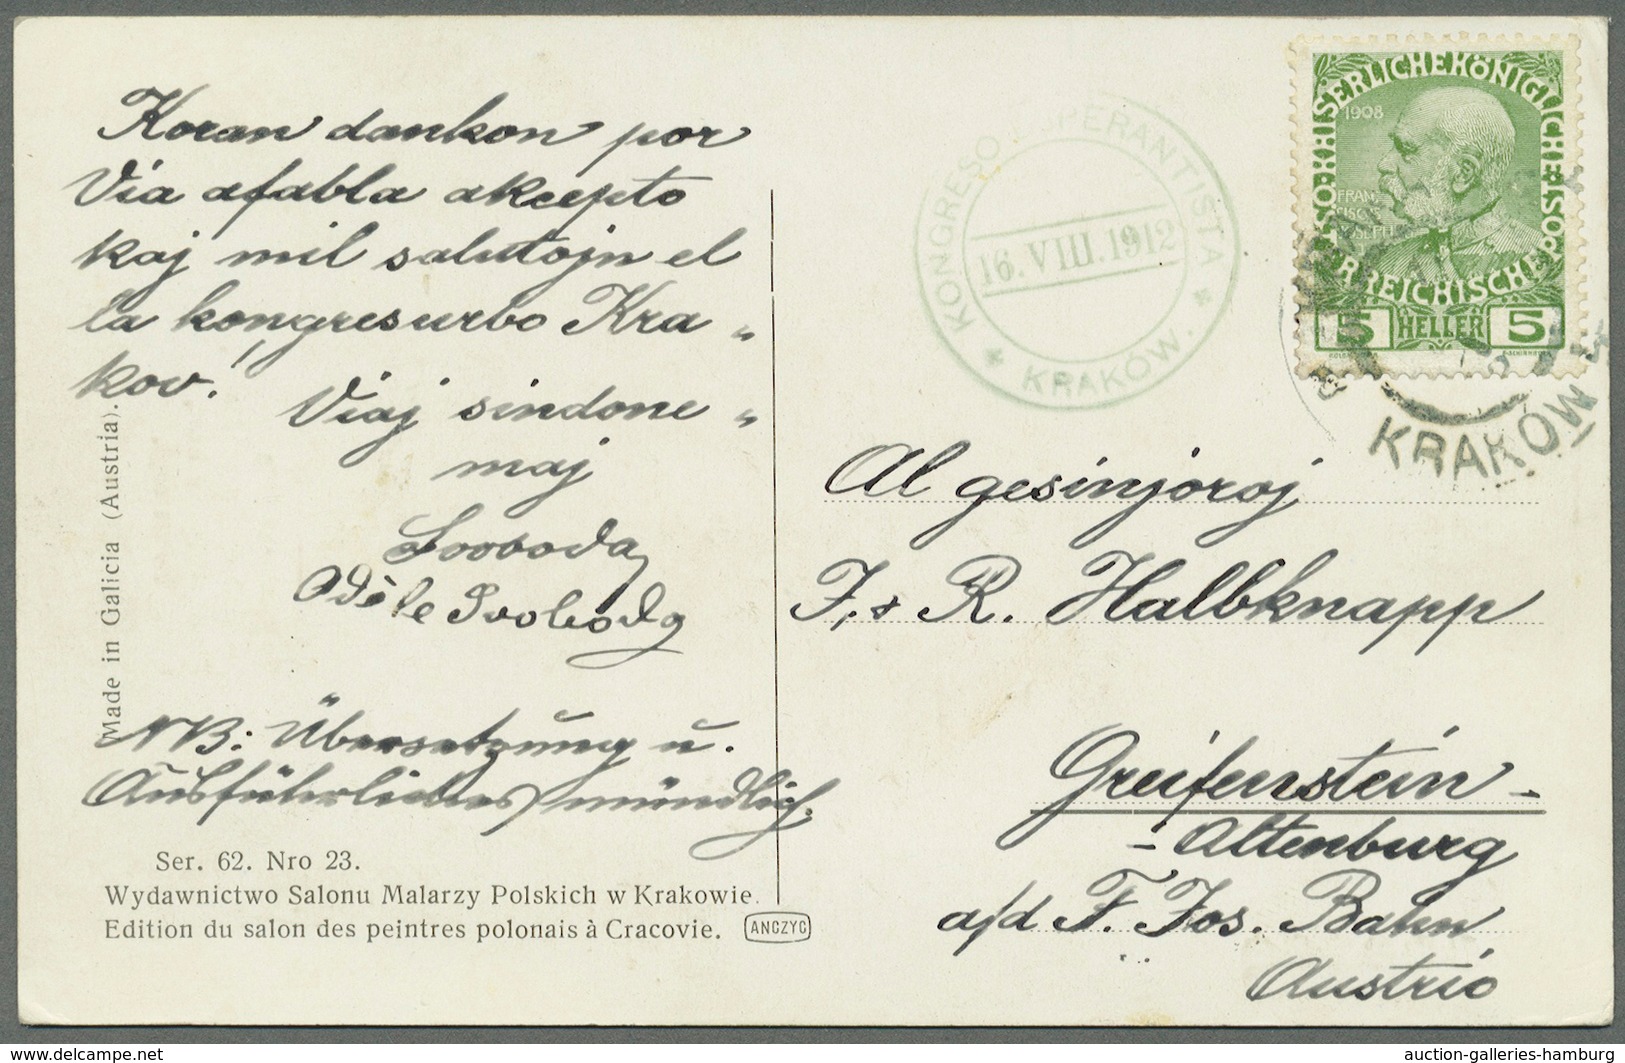 Koran dankon por
Via afabla akcepto
kaj mil salutojn el
la kongresurbo Kra „
kov!
Viaj sindone „
maj
Svoboda
Adèle Svoboda
NB: Übersetzung u.
Ausführliches mündlich.
Made in Galicia (Austria).
Ser. 62. Nro 23.
Wydawnictwo Salonu Malarzy Polskich w Krakowie.
Edition du salon des peintres polonais à Cracovie.
ANCZYC
* KONGRESO ESPERANTISTA *
16. VIII. 1912
KRAKÓW.
KAISERLICHEKÖNIGLICHE
ÖSTERREICHISCHE POST
1908
FRANZ
JOSEPH
5 HELLER 5
KRAKÓW
Al gesinjoroj
F. & R. Halbknapp
Greifenstein-
-Altenburg
a/d F. Jos. Bahn
Austrio
auction-galleries-hamburg
www.delcampe.net